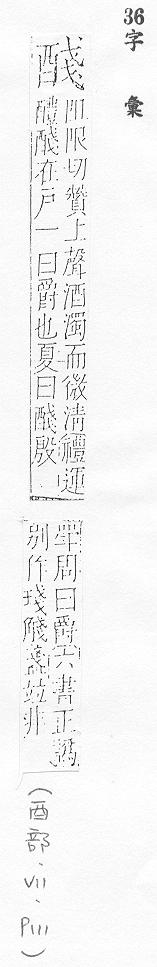 36字彙
醆
阻限切贊上聲酒濁而微清禮運
醴醆在戸一曰爵也夏曰醆殷
斝周曰爵六書正譌
別作琖𧣴盞竝非
(酉部．VII．P111)